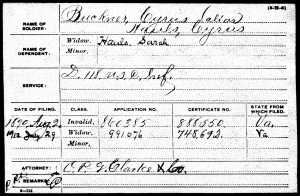 (3-26-01)
NAME OF SOLDIER: Buckner, Cyrus (alias)
Hauls, Cyrus
NAME OF DEPENDENT: Widow, Hauls, Sarah
Minor,
SERVICE: D. 118 U.S.C. Inf.
DATE OF FILING. CLASS. APPLICATION NO. CERTIFICATE NO. STATE FROM WHICH FILED.
1890 Aug 2 Invalid, 860385 888550 Va.
1912 July 29 Widow, 991076 748,692 Va
Minor,
ATTORNEY: C. P. G. Clarke & Co.
REMARKS: